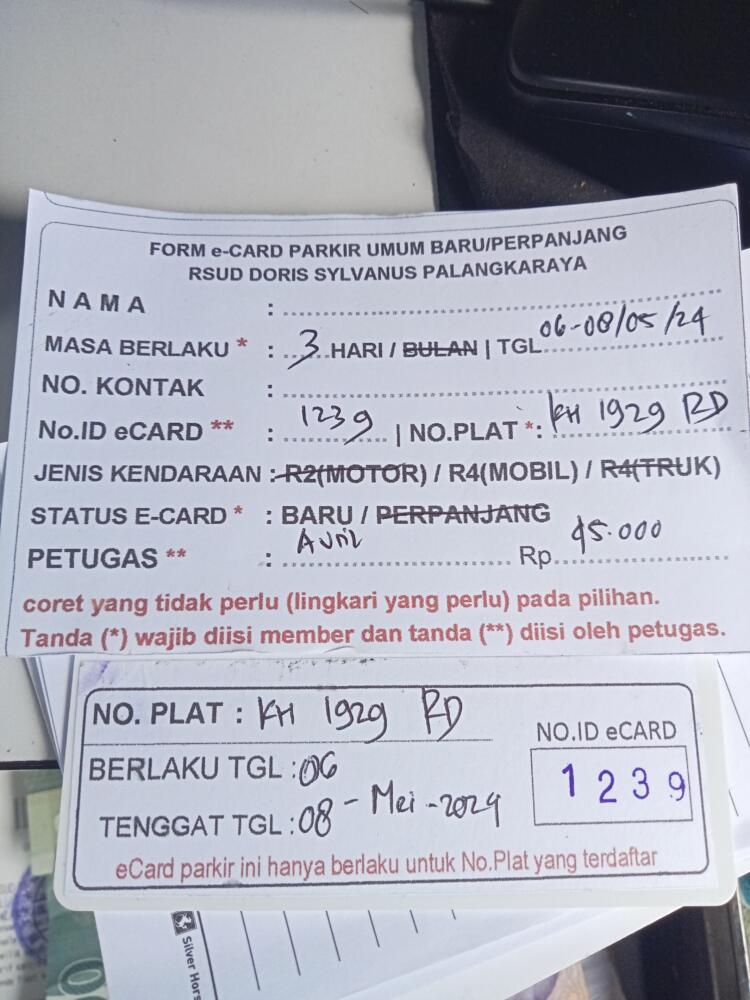 FORM e-CARD PARKIR UMUM BARU/PERPANJANG
RSUD DORIS SYLVANUS PALANGKARAYA
NAMA :
MASA BERLAKU * : 3 HARI / BULAN | TGL 06-08/05/24
NO. KONTAK :
No.ID eCARD ** : 1239 | NO.PLAT *: KH 1929 RD
JENIS KENDARAAN : R2(MOTOR) / R4(MOBIL) / R4(TRUK)
STATUS E-CARD * : BARU / PERPANJANG
PETUGAS ** : Avril Rp. 45.000
coret yang tidak perlu (lingkari yang perlu) pada pilihan.
Tanda (*) wajib diisi member dan tanda (**) diisi oleh petugas.
NO. PLAT : KH 1929 RD
NO.ID eCARD
1239
BERLAKU TGL : 06
TENGGAT TGL : 08 - Mei - 2024
eCard parkir ini hanya berlaku untuk No.Plat yang terdaftar
Silver Hors